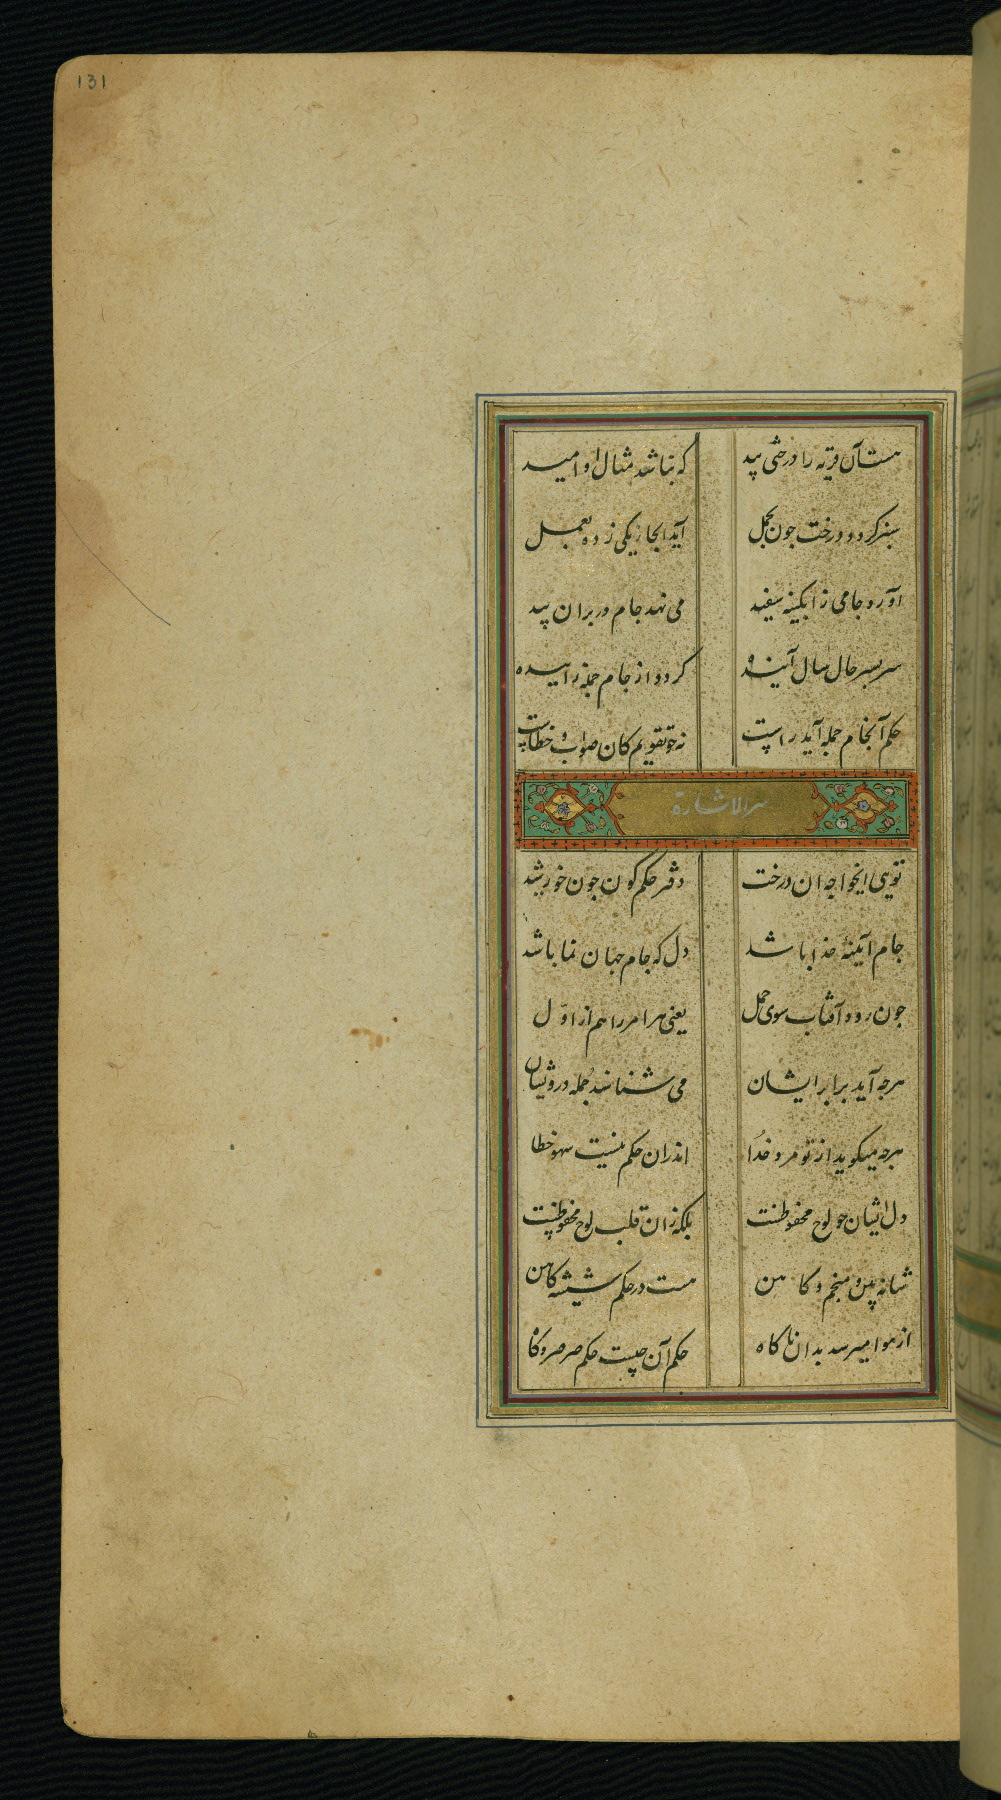 131
هست آن قریه را درختی بید
که نباشد مثال او امید
سبز گردد درخت چون بحمل
آید آنجا یکی ز ده بعمل
آورد جامی ز آبکینه سفید
می نهد جام در بران بید
سر بسر حال سال آینده
گردد از جام جمله زاییده
حکم آنجام جمله آید راست
نه چو تقویم کان صواب و خطاست
سر الاشارة
تویی ایخواجه آن درخت
دفتر حکم کون چون خورشید
جام آیینهٔ خدا باشد
دل که جام جهان نما باشد
چون رود آفتاب سوی حمل
یعنی هر امر را هم از اوّل
هرچه آید برابر ایشان
می شناسند جمله درویشان
هرچه میکوید از تو مرد خدا
اندران حکم نیست سهو خطا
دل ایشان چو لوح محفوظست
بلکه زان قلب لوح محفوظست
شانه بین و منجم و کاهن
هست در حکم شیشه کاهن
از هوا میرسد بدان ناکاه
حکم آن چیست حکم صرصر و کاه